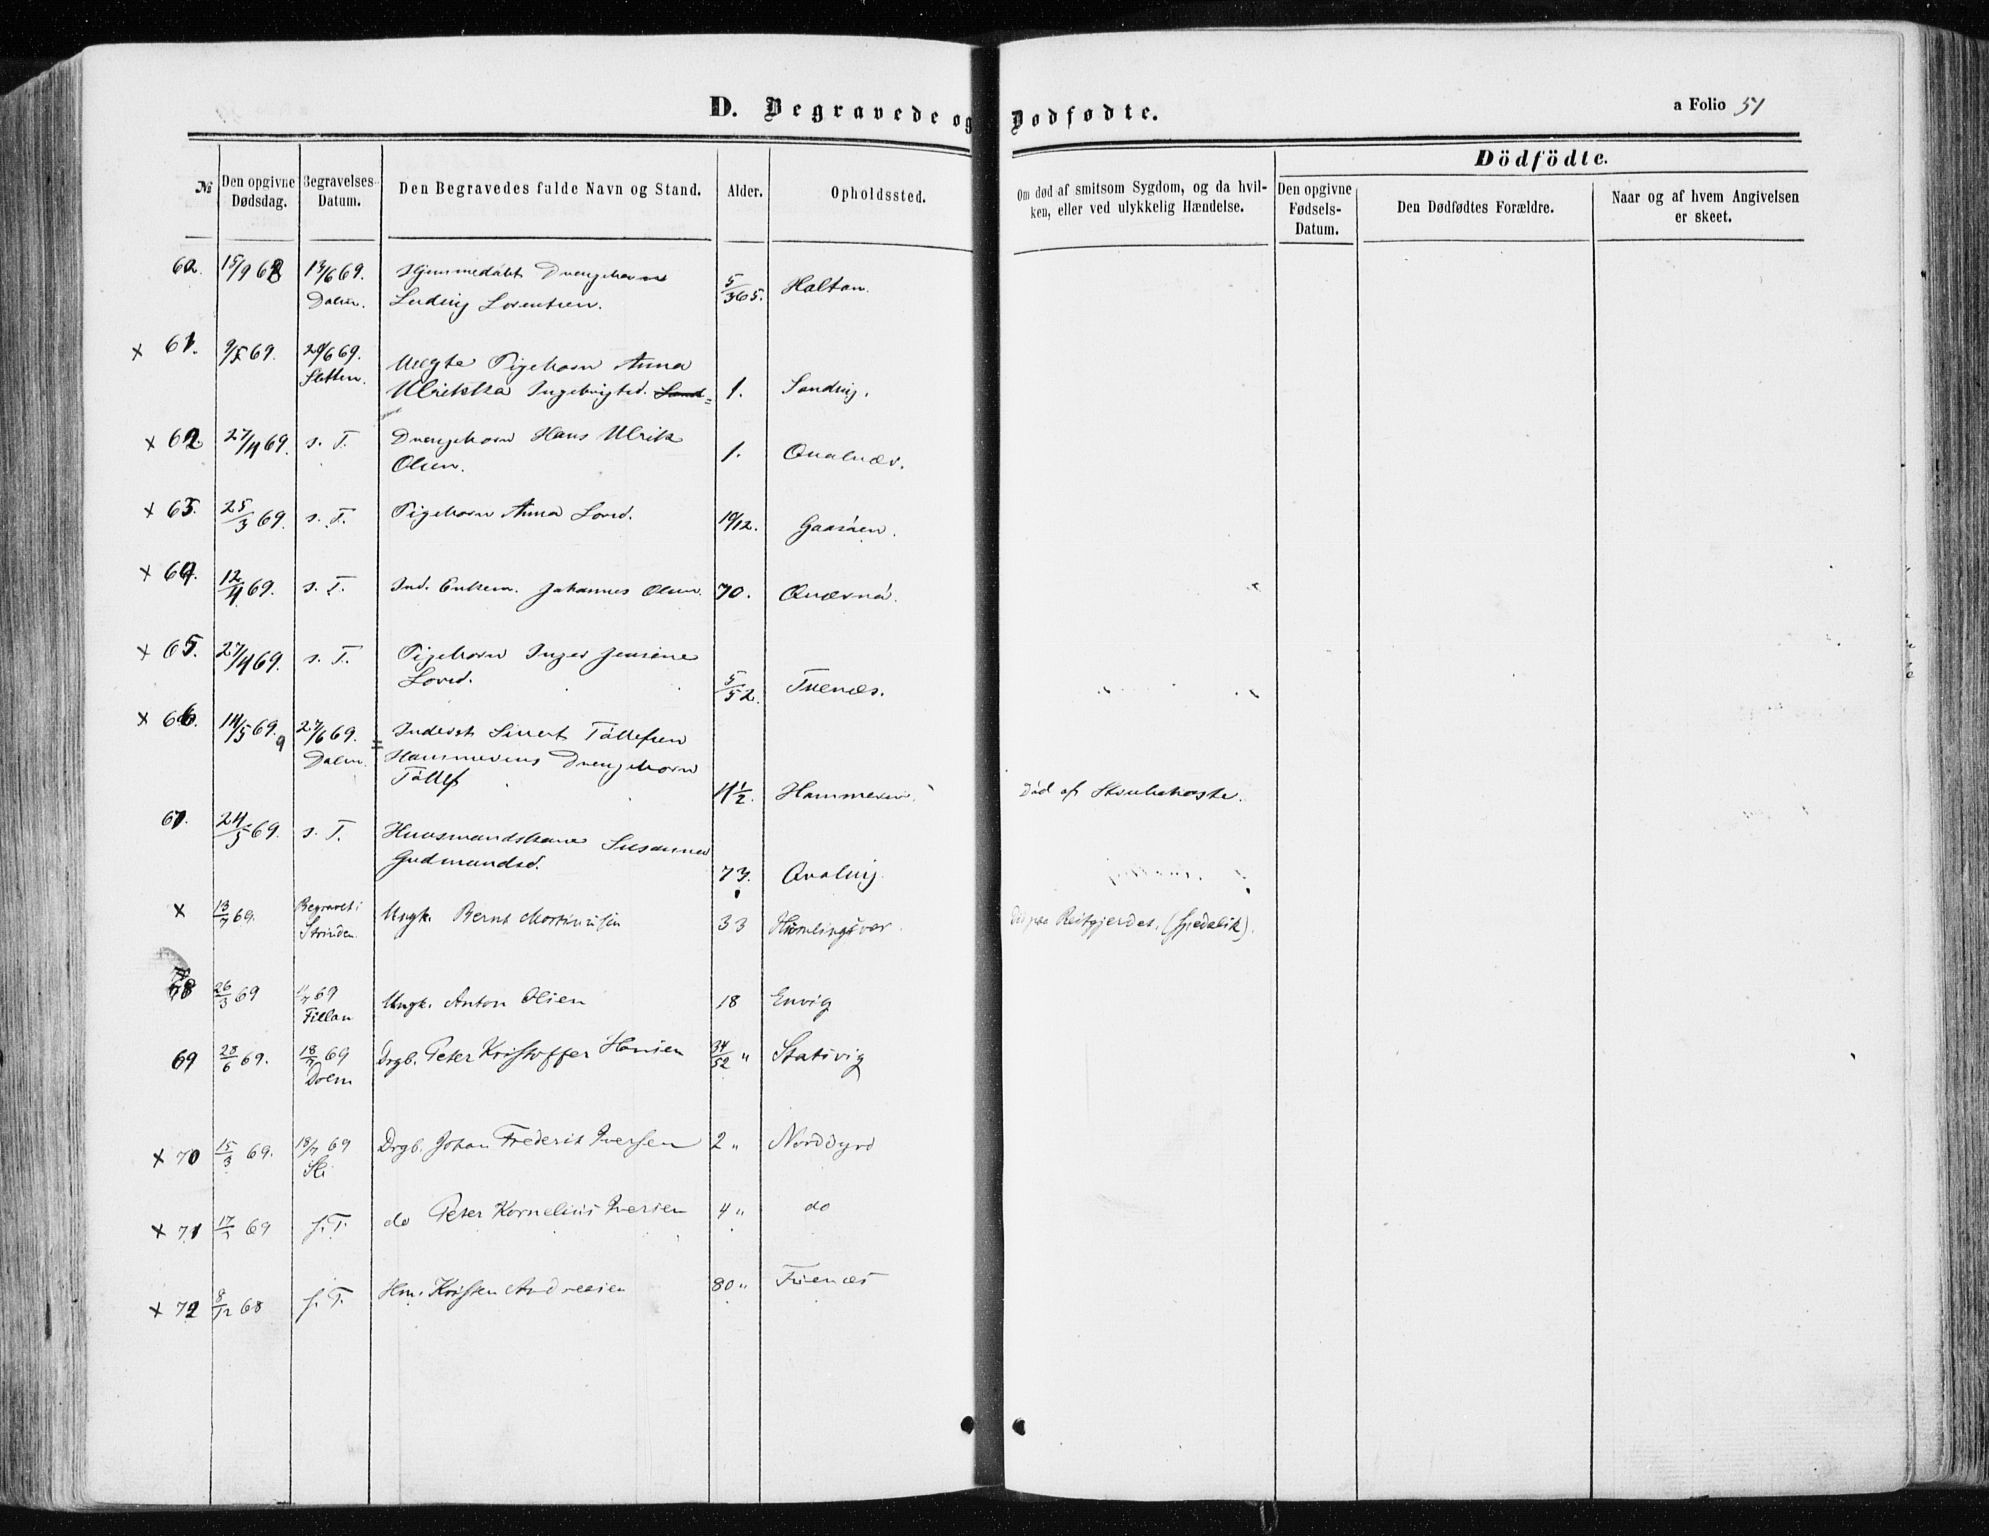 D. Begravede og Dødfødte.
a Folio 51
Dödfödte.
No
Den opgivne Dødsdag.
Begravelses-Datum.
Den Begravedes fulde Navn og Stand.
Alder.
Opholdssted.
Om død af smitsom Sygdom, og da hvil-
ken, eller ved ulykkelig Hændelse.
Den opgivne
Fødsels-
Datum.
Den Dødfødtes Forældre.
Naar og af hvem Angivelsen
er skeet.
15/9 68 13/6 69. Hjemmedöbt Drengebarn
Dolm. Ludvig Lorentsen. 5/365. Haltan.
x 61. 69. 20/6 69. Pigebarn Anna
Sletten. Ingebrigtsd. 1. Sandvig.
x 62 27/4 69. s. T. Drengebarn Hans Ulrik
Olsen. 1. Qvalnæs.
x 63. 25/3 69. s. T. Pigebarn Anna Lorsd. 10/12. Gaasöen.
x 64. 12/4 69. s. T. Ind. Enkem. Johannes Olsen. 70. Qværnö.
x 65. 27/4 69. s. T. Pigebarn Inger Jensine
Lorsd. 5/52. Tuenæs.
x 66. 14/5 69. 27/6 69. Inderst Sivert Töllefsen
Dolm. Hammervig Drengebarn
Töllef 1/2. Hammervig. Död af Strubehoste.
67. 24/5 69. s. T. Huusmandskone Susanna
Gudmundsd. 73. Qvalvig.
x 13/7 69. Begravet i
Strinden Ungk. Bernt Mortinusen 33 Humlingsvær. Död paa Reitgjerdet. (Spedalsk).
68 26/3 69 11/7 69
Fillan Ungk. Anton Olsen 18 Envig
69 28/6 69. 18/7 69
Dolm Drgb. Peter Kristoffer Hansen 34/52 " Statsvig
x 70 15/3 69. 18/7 69
Sle Drgb. Johan Frederik Iversen 2 " Norddyrö
x 71 17/3 69 s. T. do Peter Kornelius Iversen 4 " do
x 72 8/12 68 s. T. Hm. Kristen Andreasen 80 " Tuenæs